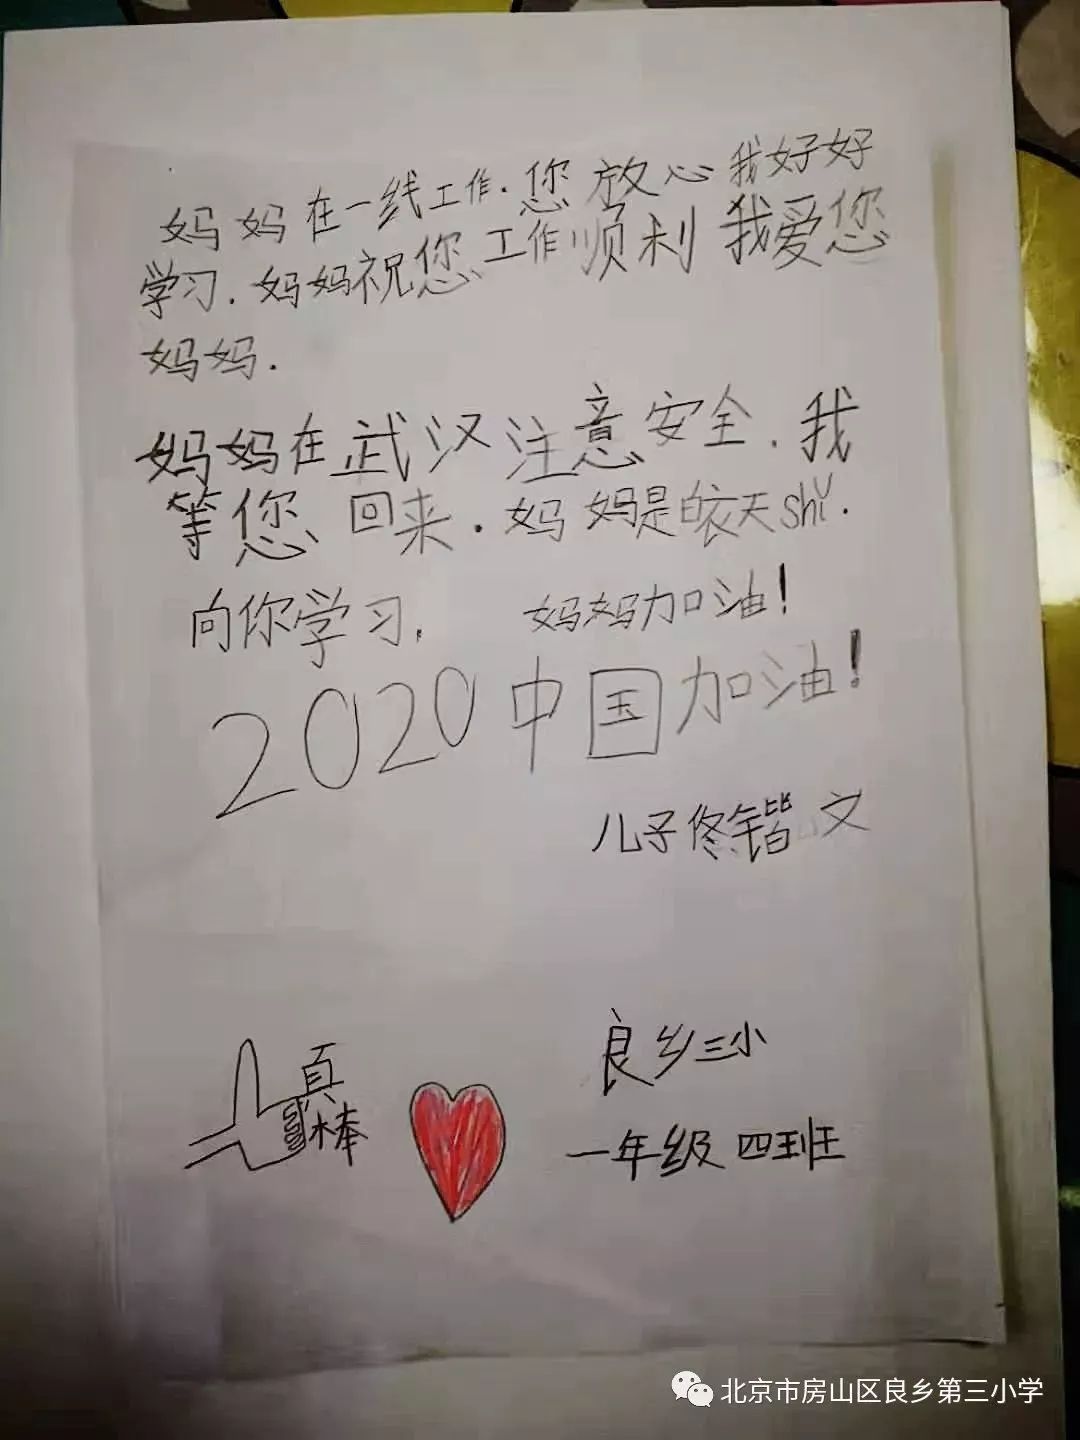 妈妈在一线工作.您放心我好好
学习.妈妈祝您工作顺利我爱您
妈妈.
妈妈在武汉注意安全.我
等您回来.妈妈是白衣天shǐ.
向你学习.  妈妈加油!
2020中国加油!
儿子佟锴文
真棒
良乡三小
一年级四班
北京市房山区良乡第三小学